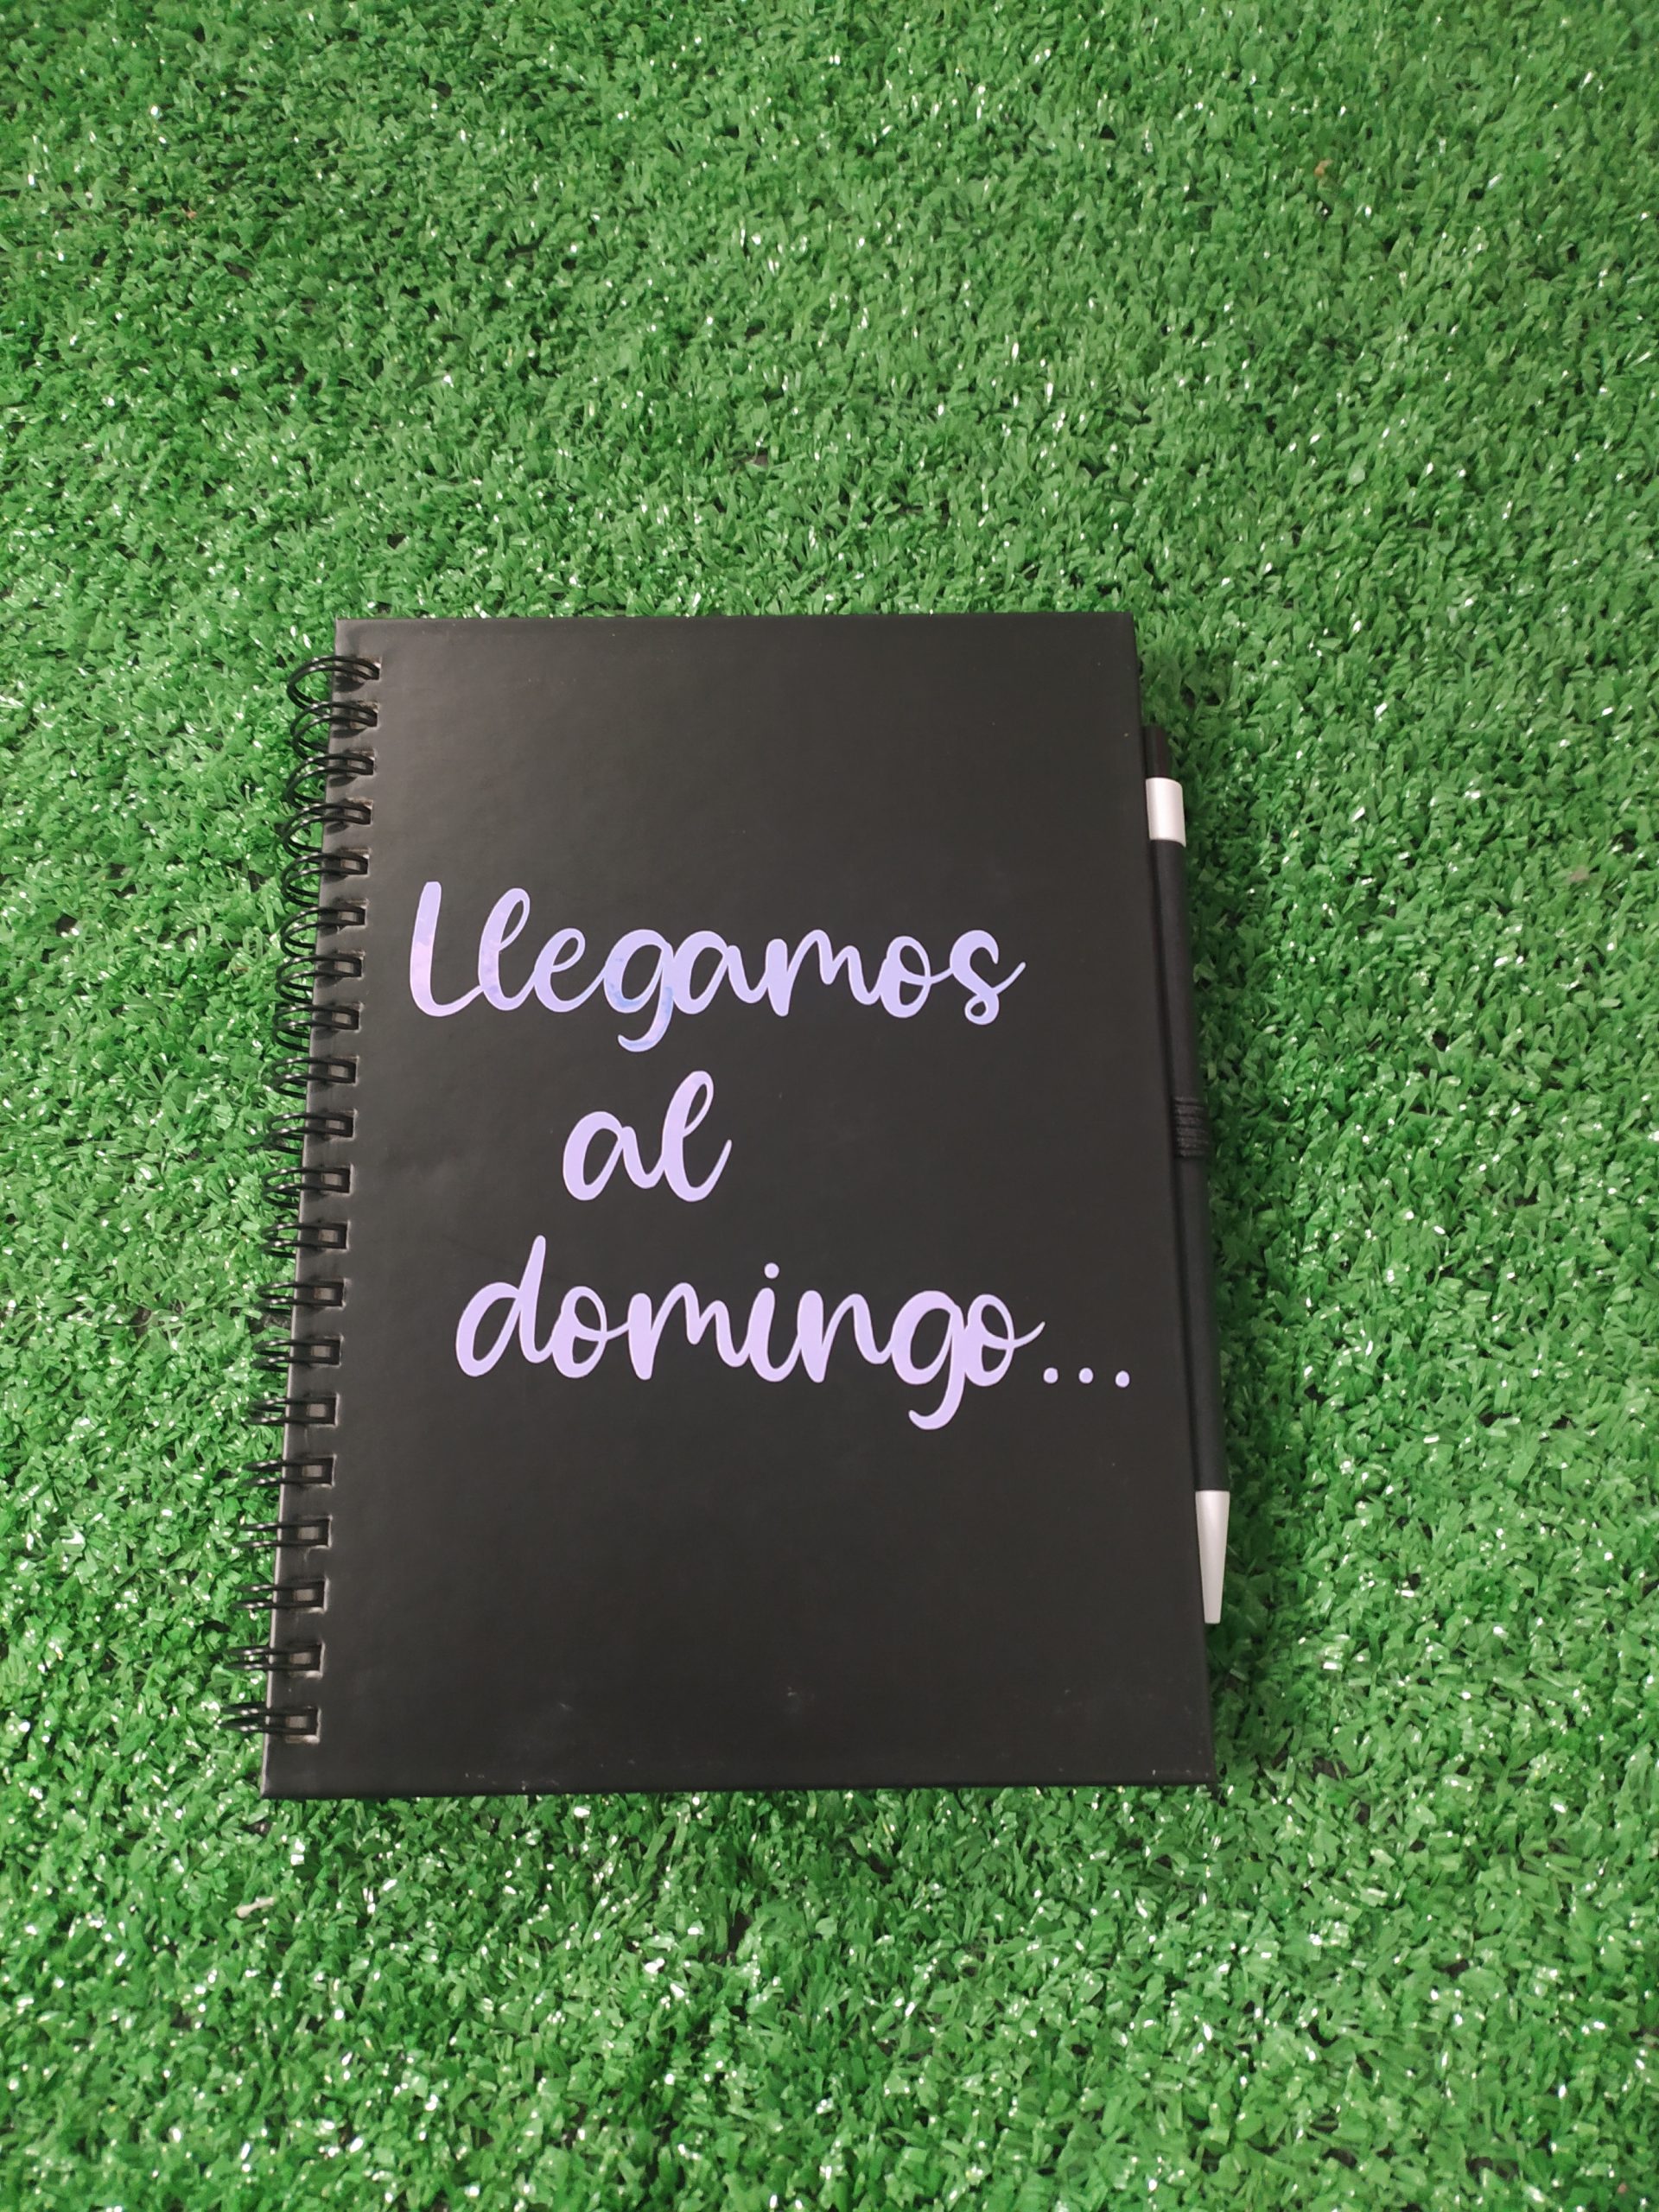 Llegamos
al
domingo...